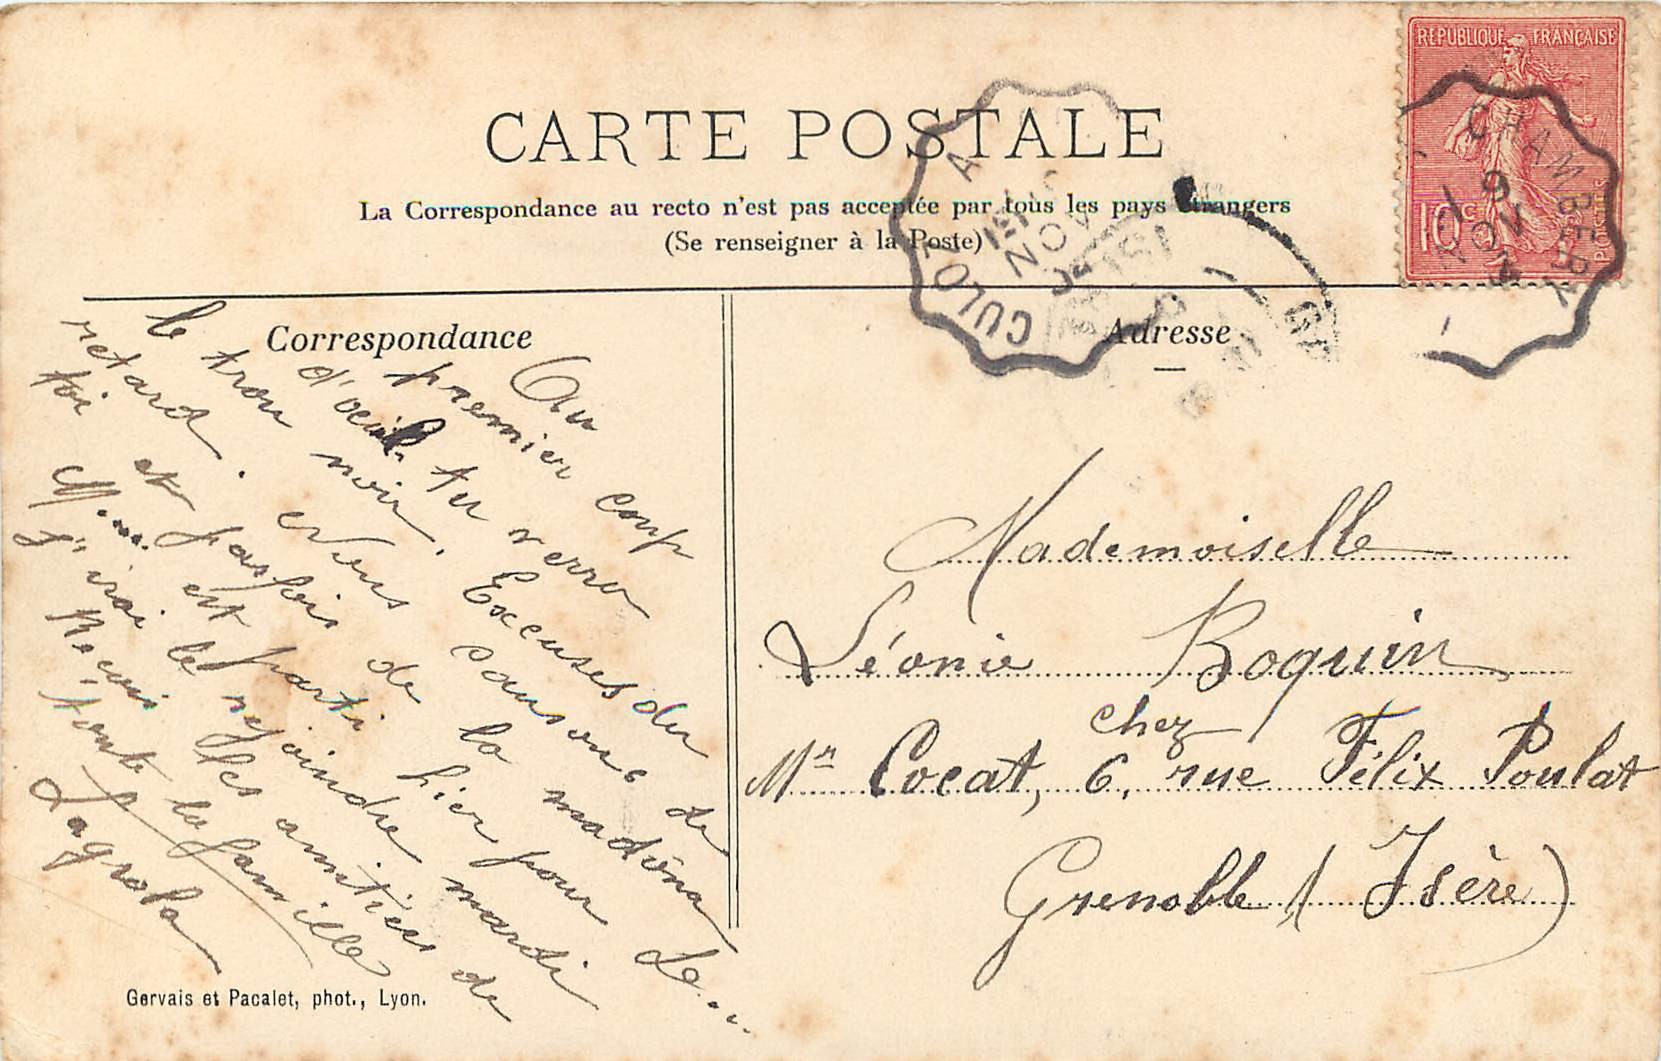 REPUBLIQUE FRANÇAISE
10c
POSTES
CARTE POSTALE
La Correspondance au recto n'est pas acceptée par tous les pays étrangers
(Se renseigner à la Poste)
CULOZ A
NOV
CHAMBERY
NOV
Correspondance
Adresse
Au
premier coup
d'oeil tu verra
le trou noir. Excuses du
retard. Nous causons de
toi et parfois de la madôna
M.... est parti hier pour L...
J'irai le rejoindre mardi
Reçois les amitiés de
toute la famille
Lagrola
Mademoiselle
Léonie Roquin
chez
Mr Cocat, 6, rue Félix Poulat
Grenoble (Isère)
Gervais et Pacalet, phot., Lyon.